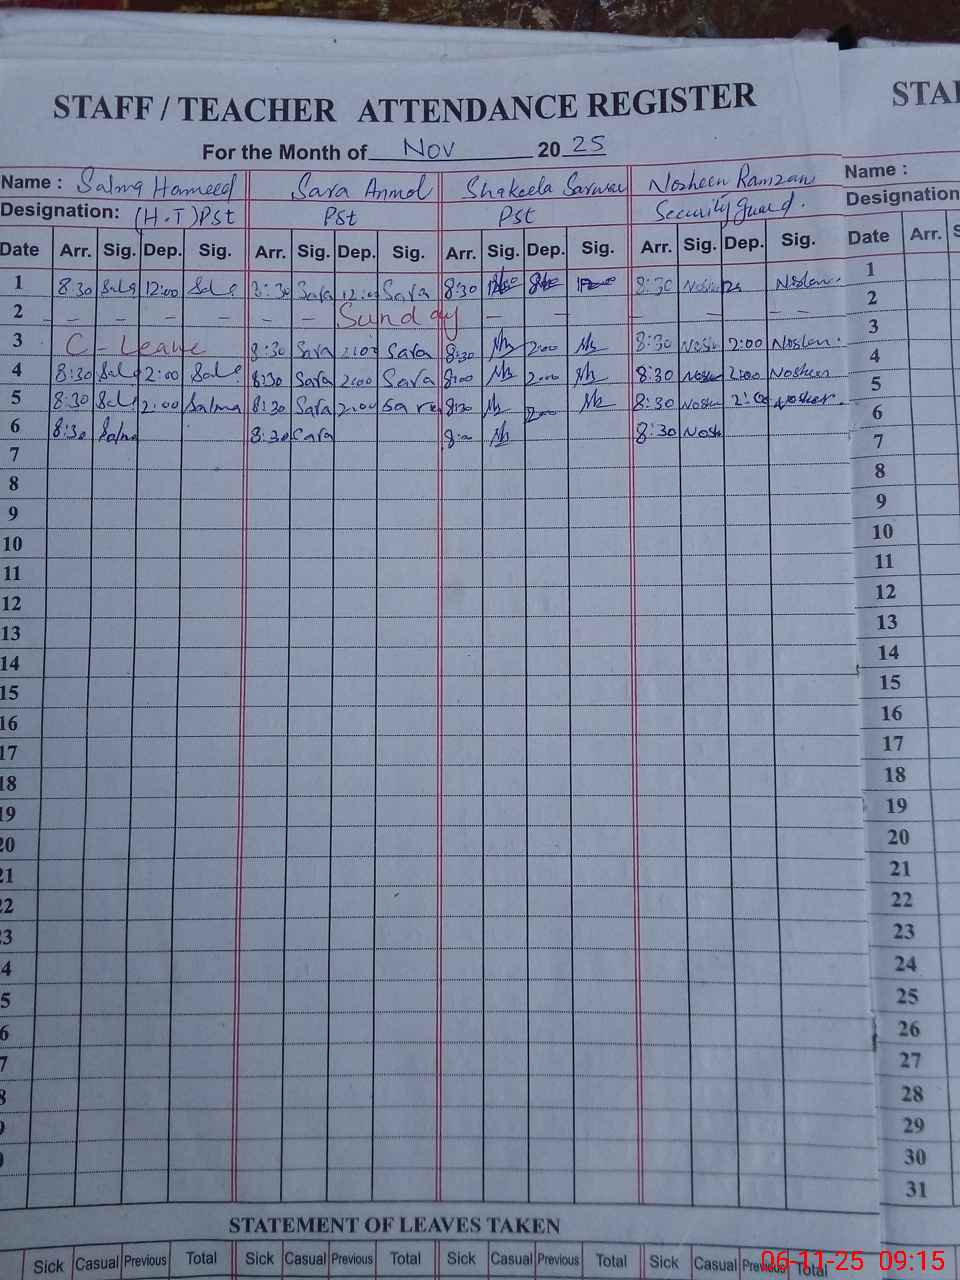 STAFF / TEACHER ATTENDANCE REGISTER
STA
For the Month of Nov 2025
Name : Salma Hameed Sara Anmol Shakeela Sarwar Nosheen Ramzan
Name :
Designation: (H.T) Pst Pst Pst Security guard.
Designation
Date Arr. Sig. Dep. Sig. Arr. Sig. Dep. Sig. Arr. Sig. Dep. Sig. Arr. Sig. Dep. Sig.
Date Arr. S
1 8:30 12:00 8:30 Sara 12:00 Sara 8:30 8:30
2 - - - - - - Sunday - - - -
3 C - Leave 8:30 Sara 2:00 Sara 8:30 2:00 8:30 2:00
4 8:30 2:00 8:30 Sara 2:00 Sara 8:00 2:00 8:30 2:00
5 8:30 2:00 Salma 8:30 Sara 2:00 Sara 8:30 2:00 8:30 2:00
6 8:30 Salma 8:30 Sara 8:00 8:30 Nosh
7
8
9
10
11
12
13
14
15
16
17
18
19
20
21
22
23
4
5
6
7
8
1
2
3
4
5
6
7
8
9
10
11
12
13
14
15
16
17
18
19
20
21
22
23
24
25
26
27
28
29
30
31
STATEMENT OF LEAVES TAKEN
Sick Casual Previous Total Sick Casual Previous Total Sick Casual Previous Total Sick Casual Previous Total
06-11-25 09:15